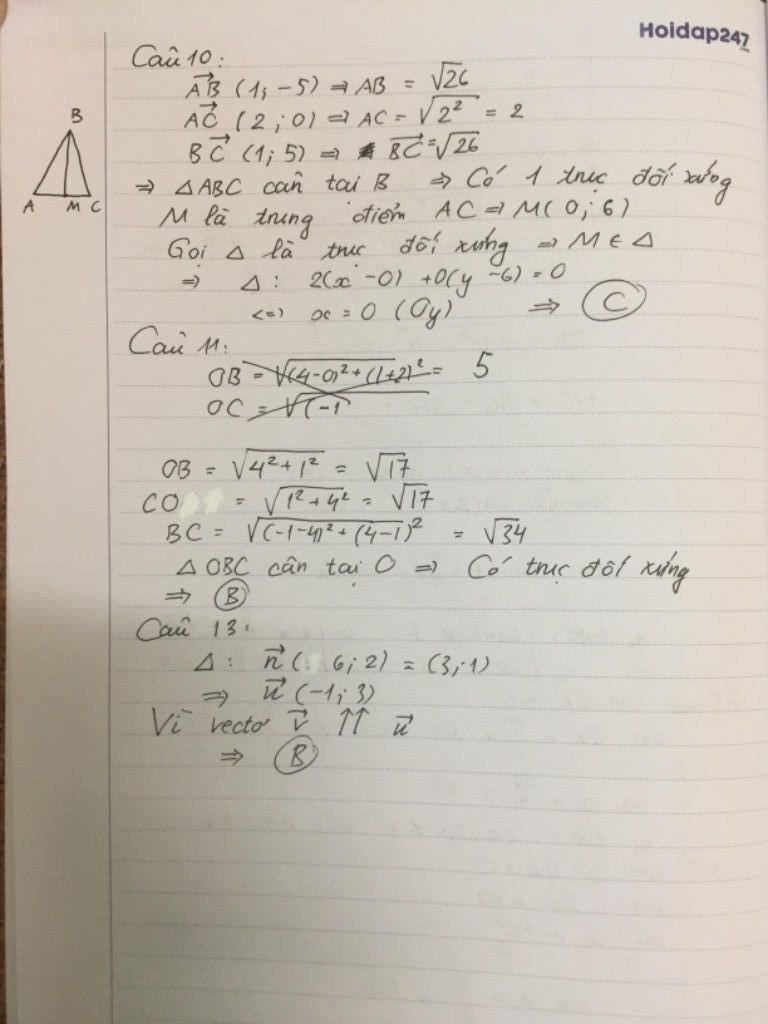 Hoidap247
Câu 10:
AB⃗ (1; -5) ⇒ AB = √26
AC⃗ (2; 0) ⇒ AC = √2² = 2
BC⃗ (1; 5) ⇒ BC⃗ = √26
⇒ △ABC cân tại B ⇒ Có 1 trục đối xứng
M là trung điểm AC ⇒ M(0; 6)
Gọi △ là trục đối xứng ⇒ M ∈ △
⇒ △: 2(x -0) +0(y -6) = 0
<=> x = 0 (Oy) ⇒ C
B
A M C
Câu 11:
OB = √(4-0)²+(1+2)² = 5
OC = √(-1
OB = √4²+1² = √17
CO = √1²+4² = √17
BC = √(-1-4)²+(4-1)² = √34
△ OBC cân tại O ⇒ Có trục đối xứng
⇒ B
Câu 13:
△: n⃗ (6; 2) = (3; 1)
⇒ u⃗ (-1; 3)
Vì vectơ v⃗ ↑↑ u⃗
⇒ B